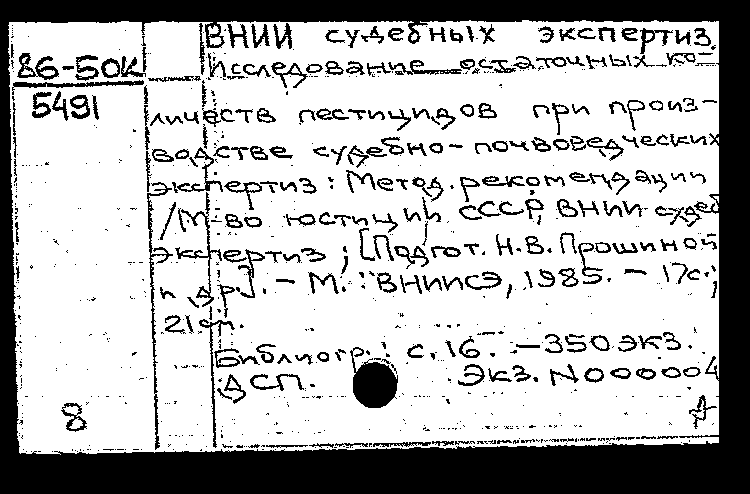 ВНИИ судебных экспертиз.
86-50К
Исследование остаточных ко-
5491
личеств пестицидов при произ-
водстве судебно-почвоведческих
экспертиз: Метод. рекомендации
/М-во юстиции СССР, ВНИИ судеб
экспертиз; [Подгот. Н.В. Прошиной
и др.]. - М.: ВНИИСЭ, 1985. - 17с.;
21см.
Библиогр.: с. 16. - 350 экз.
ДСП. Экз. N000004
8